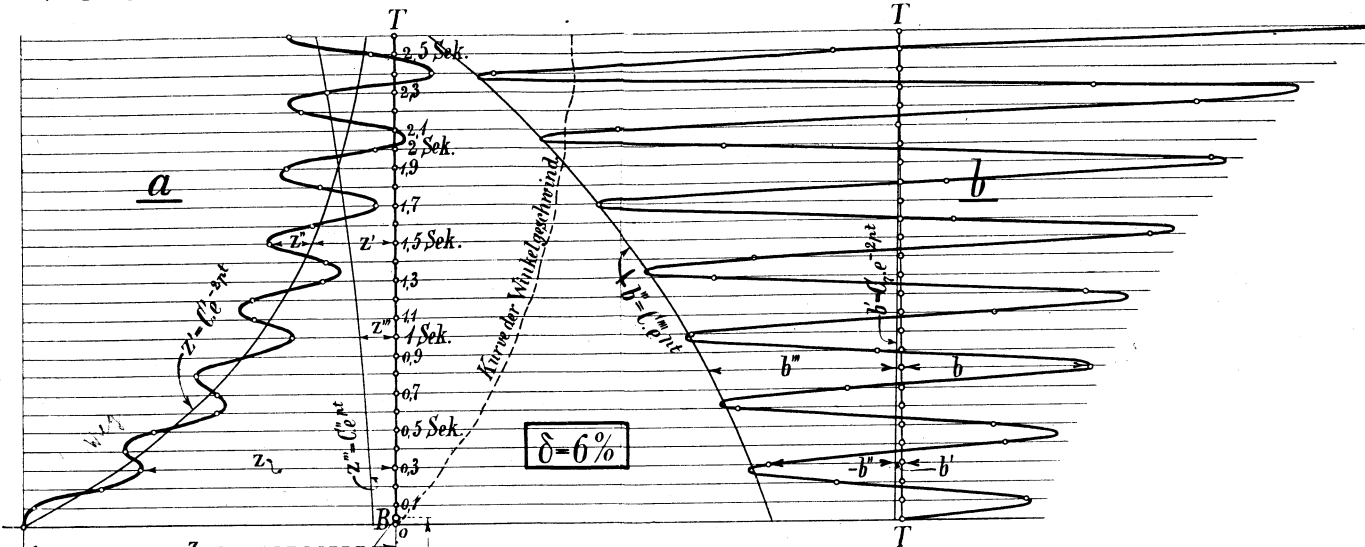 T
2,5 Sek.
2,3
2,1
2 Sek.
1,9
1,7
1,5 Sek.
1,3
1,1
1 Sek.
0,9
0,7
0,5 Sek.
0,3
0,1
0
B
a
z''
z'
z'''
z
z' = C'e^-2pt
z''' = C''e^pt
Weg
z
Kurve der Winkelgeschwind.
δ=6%
T
b
b''' = C'''e^pt
b' = C,e^-2pt
b'''
b
-b''
-b'
T